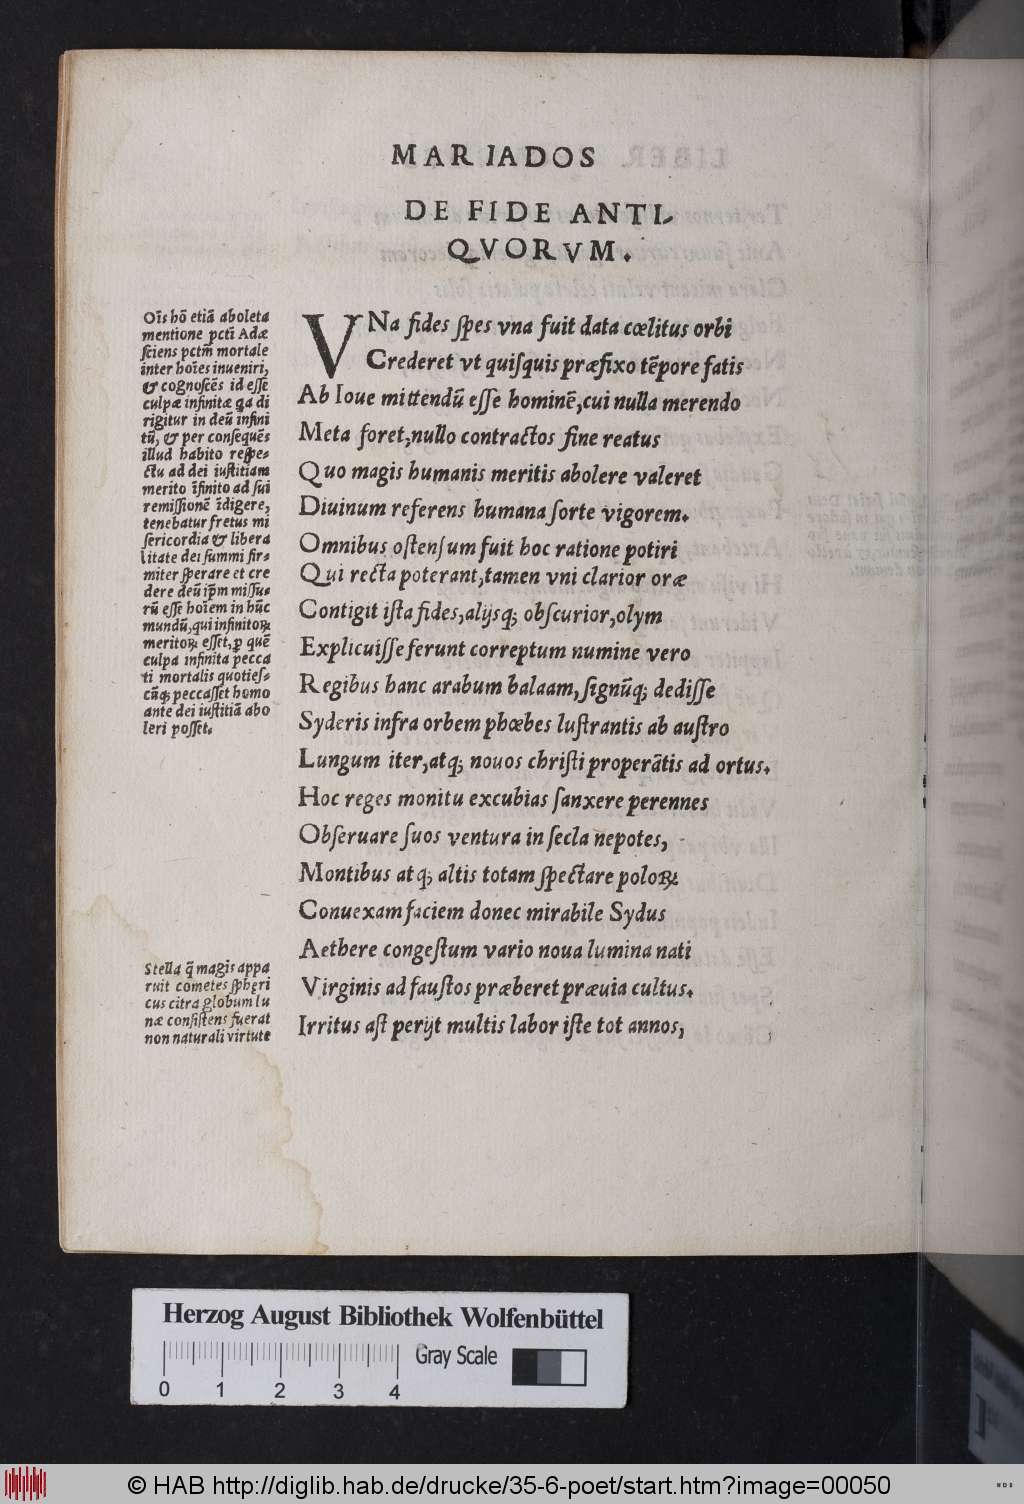 MARIADOS
DE FIDE ANTI-
QVORVM.
Oı̄s hō etiā aboleta
mentione pcti Adæ
ſciens pctm̄ mortale
inter hoı̄es inueniri,
& cognoſcēs id eſſe
culpæ infinitæ qa di
rigitur in deū infini
tū, & per conſequēs
illud habito reſpe-
ctu ad dei iuſtitiam
merito ı̄finito ad ſui
remiſſionē ı̄digere,
tenebatur fretus mi
ſericordia & libera
litate dei ſummi fir-
miter ſperare et cre
dere deū ip̄m miſſu-
rū eſſe hoı̄em in hūc
mundū, qui infinitoꝝ
meritoꝝ eſſet, ꝑ quē
culpa infinita pecca
ti mortalis quotieſ-
cūq; peccaſſet homo
ante dei iuſtitiā abo
leri poſſet.
VNa fides ſpes vna fuit data cœlitus orbi
Crederet vt quiſquis præfixo tēpore fatis
Ab Ioue mittendū eſſe hominē, cui nulla merendo
Meta foret, nullo contractos ſine reatus
Quo magis humanis meritis abolere valeret
Diuinum referens humana ſorte vigorem.
Omnibus oſtenſum fuit hoc ratione potiri
Qui recta poterant, tamen vni clarior oræ
Contigit iſta fides, alijsq; obſcurior, olym
Explicuiſſe ferunt correptum numine vero
Regibus hanc arabum balaam, ſignūq; dediſſe
Syderis infra orbem phœbes luſtrantis ab auſtro
Lungum iter, atq; nouos chriſti properātis ad ortus.
Hoc reges monitu excubias ſanxere perennes
Obſeruare ſuos ventura in ſecla nepotes,
Montibus atq; altis totam ſpectare poloꝝ
Conuexam faciem donec mirabile Sydus
Aethere congeſtum vario noua lumina nati
Virginis ad fauſtos præberet præuia cultus.
Irritus aſt perijt multis labor iſte tot annos,
Stella q̄ magis appa
ruit cometes ſphęri
cus citra globum lu
næ conſiſtens fuerat
non naturali virtute
Herzog August Bibliothek Wolfenbüttel
Gray Scale
0 1 2 3 4
© HAB http://diglib.hab.de/drucke/35-6-poet/start.htm?image=00050